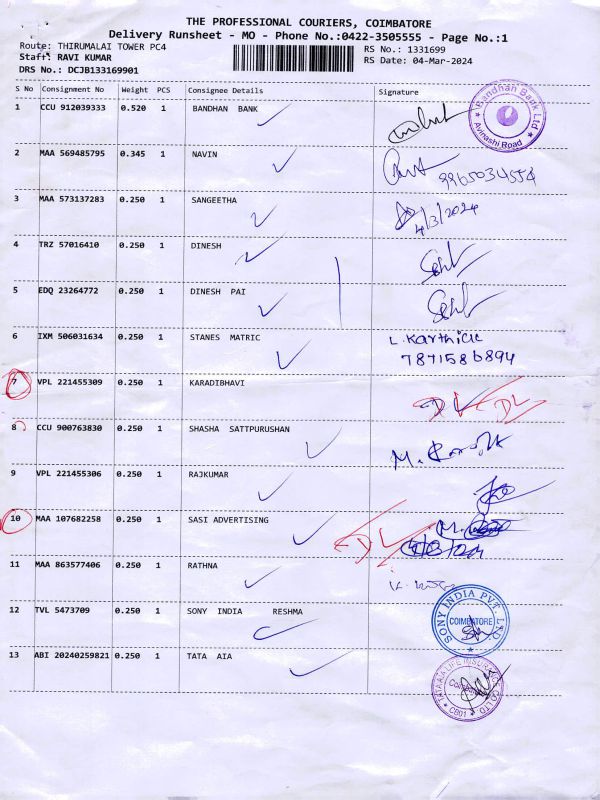 THE PROFESSIONAL COURIERS, COIMBATORE
Delivery Runsheet - MO - Phone No.:0422-3505555 - Page No.:1
Route: THIRUMALAI TOWER PC4 RS No.: 1331699
Staff: RAVI KUMAR RS Date: 04-Mar-2024
DRS No.: DCJB133169901
S No Consignment No Weight PCS Consignee Details Signature
1 CCU 912039333 0.520 1 BANDHAN BANK
Bandhan Bank Ltd
Avinashi Road
2 MAA 569485795 0.345 1 NAVIN
3 MAA 573137283 0.250 1 SANGEETHA
4/3/2024
4 TRZ 57016410 0.250 1 DINESH
5 EDQ 23264772 0.250 1 DINESH PAI
6 IXM 506031634 0.250 1 STANES MATRIC L. Karthick
7871586894
7 VPL 221455309 0.250 1 KARADIBHAVI DL DL
8 CCU 900763830 0.250 1 SHASHA SATTPURUSHAN
9 VPL 221455306 0.250 1 RAJKUMAR
10 MAA 107682258 0.250 1 SASI ADVERTISING DL
11 MAA 863577406 0.250 1 RATHNA
12 TVL 5473709 0.250 1 SONY INDIA RESHMA
SONY INDIA PVT. LTD.
COIMBATORE
13 ABI 20240259821 0.250 1 TATA AIA